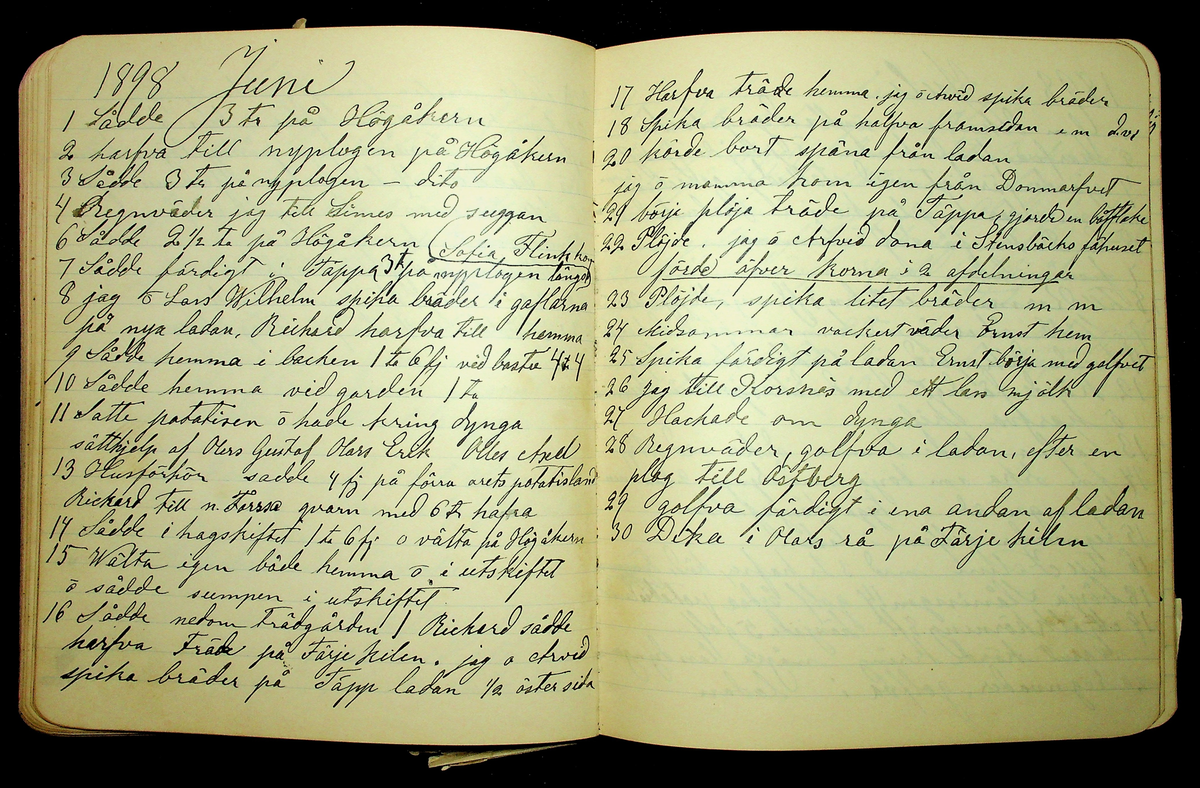 1898 Juni
1 Sådde 3 tr på Högåkern
2 harfva till nyplogen på Högåkern
3 Sådde 3 tr på nyplogen - dito
4 Regnväder jag till Limes med suggan
6 Sådde 2 ½ ta på Högåkern (Sofia Flink kom
7 Sådde färdigt i Täppa 3 tr på nyplogen längor
8 jag o Lars Wilhelm spika bräder i gaflarna
på nya ladan. Rickard harfva till hemma
9 Sådde hemma i backen 1 ta 6 fj ved bastu 4 t 4
10 Sådde hemma vid garden 1 ta
11 Satte potatisen ö hade kring dynga
sätthjelp af Olers Gustaf Olars Erik Olles Axell
13 Husförhör sadde 4 fj på förra arets potatisland
Rickard till n. qvarn med 6 tr hafra
14 Sådde i hagskiftet 1 ta 6 fj o välta på Högåkern
15 Wälta igen både hemma ö i utskiftet
ö sådde sumpen i utskiftet
16 Sådde nedom trädgården 1 Rickard sådde
harfva Träde på Färjekilen. jag o Arvid
spika bräder på Täpp ladan ½ öster sida
17 Harfva träde hemma. jag ö Arvid spika bräder
18 Spika bräder på halfva framsidan e m
20 körde bort späna från ladan
jag ö mamma kom igen från Donmarfvet
21 börja plöja träde på Täppa, gjorde en
22 Plöjde. jag ö Arfved dana i Stensbäcks fähuset
förde äfver korna i 2 afdelningar
23 Plöjde, spika litet bräder m m
24 Midsommar vackert väder Ernst hem
25 Spika färdigt på ladan Ernst börja med golfvet
26 jag till Korsnäs med ett lass mjölk
27 Hackade om dynga
28 Regnväder, golfva i ladan, efter en
plog till Östberg
29 golfva färdigt i ena andan af ladan
30 Dika i Olars rå på Färjekilen